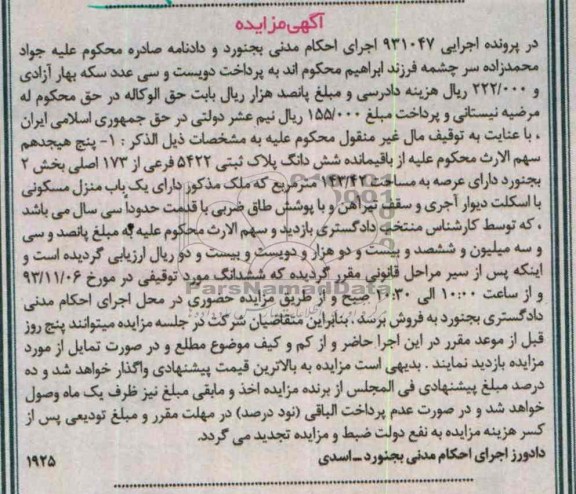 آگهی مزایده
در پرونده اجرایی ۹۳۱۰۴۷ اجرای احکام مدنی بجنورد و دادنامه صادره محکوم علیه جواد
محمدزاده سر چشمه فرزند ابراهیم محکوم اند به پرداخت دویست و سی عدد سکه بهار آزادی
و ۲۲۲/۰۰۰ ریال هزینه دادرسی و مبلغ پانصد هزار ریال بابت حق الوکاله در حق محکوم له
مرضیه نیستانی و پرداخت مبلغ ۱۵۵/۰۰۰ ریال نیم عشر دولتی در حق جمهوری اسلامی ایران
، با عنایت به توقیف مال غیر منقول محکوم علیه به مشخصات ذیل الذکر : ۱- پنج هیجدهم
سهم الارث محکوم علیه از باقیمانده شش دانگ پلاک ثبتی ۵۴۲۲ فرعی از ۱۷۳ اصلی بخش ۲
بجنورد دارای عرصه به مساحت ۱۴۳/۴۲ مترمربع که ملک مذکور دارای یک باب منزل مسکونی
با اسکلت دیوار آجری و سقف تیرآهن و با پوشش طاق ضربی با قدمت حدوداً سی سال می باشد
، که توسط کارشناس منتخب دادگستری بازدید و سهم الارث محکوم علیه به مبلغ پانصد و سی
و سه میلیون و ششصد و بیست و دو هزار و دویست و بیست و دو ریال ارزیابی گردیده است و
اینکه پس از سیر مراحل قانونی مقرر گردیده که ششدانگ مورد توقیفی در مورخ ۹۳/۱۱/۰۶
و از ساعت ۱۰:۰۰ الی ۱۰:۳۰ صبح و از طریق مزایده حضوری در محل اجرای احکام مدنی
ParsNamadData
دادگستری بجنورد به فروش برسد . بنابراین متقاضیان شرکت در جلسه مزایده میتوانند پنج روز
قبل از موعد مقرر در این اجرا حاضر و از کم و کیف موضوع مطلع و در صورت تمایل از مورد
مزایده بازدید نمایند . بدیهی است مزایده به بالاترین قیمت پیشنهادی واگذار خواهد شد و ده
درصد مبلغ پیشنهادی فی المجلس از برنده مزایده اخذ و مابقی مبلغ نیز ظرف یک ماه وصول
خواهد شد و در صورت عدم پرداخت الباقی (نود درصد) در مهلت مقرر و مبلغ تودیعی پس از
کسر هزینه مزایده به نفع دولت ضبط و مزایده تجدید می گردد.
دادورز اجرای احکام مدنی بجنورد – اسدی
۱۹۲۵